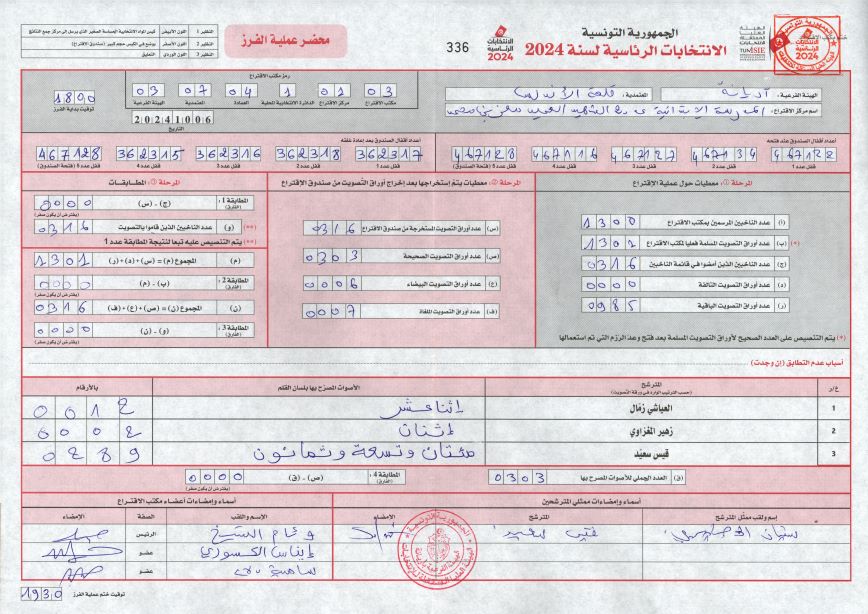 الجمهورية التونسية
الانتخابات الرئاسية لسنة 2024
336
الانتخابات الرئاسية 2024
محضر عملية الفرز
النظير 1 اللون الأبيض
النظير 2 اللون الأصفر يوضع في الكيس حجم كبير (صندوق الاقتراع)
النظير 3 اللون الوردي التعليق
الهيئة الفرعية: أريانة المعتمدية: قلعة الأندلس
اسم مركز الاقتراع: المدرسة الابتدائية
رمز مكتب الاقتراع
03 07 04 1 01 03
الهيئة الفرعية المعتمدية العمادة الدائرة الانتخابية المحلية مركز الاقتراع مكتب الاقتراع
1800
توقيت بداية الفرز
20241006
التاريخ
أعداد أقفال الصندوق عند فتحه
467128 467134 467127 467116 467128
قفل عدد 1 قفل عدد 2 قفل عدد 3 قفل عدد 4 قفل عدد 5 (فتحة الصندوق)
أعداد أقفال الصندوق بعد إعادة غلقه
362317 362318 362316 362315 467128
قفل عدد 1 قفل عدد 2 قفل عدد 3 قفل عدد 4 قفل عدد 5 (فتحة الصندوق)
المرحلة 1: معطيات حول عملية الاقتراع
(أ) عدد الناخبين المرسمين بمكتب الاقتراع 1300
(*) (ب) عدد أوراق التصويت المسلمة فعليا لمكتب الاقتراع 1301
(ج) عدد الناخبين الذين أمضوا في قائمة الناخبين 0316
(د) عدد أوراق التصويت التالفة 0000
(ر) عدد أوراق التصويت الباقية 0985
(*) يتم التنصيص على العدد الصحيح لأوراق التصويت المسلمة بعد فتح وعد الرزم التي تم استعمالها
المرحلة 2: معطيات يتم إستخراجها بعد إخراج أوراق التصويت من صندوق الاقتراع
(س) عدد أوراق التصويت المستخرجة من صندوق الاقتراع 0316
(ص) عدد أوراق التصويت الصحيحة 0303
(ع) عدد أوراق التصويت البيضاء 0006
(ف) عدد أوراق التصويت الملغاة 0007
المرحلة 3: المطابقات
المطابقة 1: (الفارق) (ج) - (س) 0000
(يفترض أن يكون صفر)
(**) (و) عدد الناخبين الذين قاموا بالتصويت 0316
(**) يتم التنصيص عليه تبعا لنتيجة المطابقة عدد 1
(م) المجموع (م) = (س)+(د)+(ر) 1301
المطابقة 2: (الفارق) (ب) - (م) 0000
(يفترض أن يكون صفر)
(ن) المجموع (ن) = (ص)+(ع)+(ف) 0316
المطابقة 3: (الفارق) (و) - (ن) 0000
(يفترض أن يكون صفر)
أسباب عدم التطابق (إن وجدت)
ع/ر المترشح (حسب الترتيب الوارد في ورقة التصويت) الأصوات المصرح بها بلسان القلم بالأرقام
1 العياشي زمّال إثنا عشر 0012
2 زهير المغزاوي إثنان 0002
3 قيس سعيّد مئتان وتسعة وثمانون 0289
(ق) العدد الجملي للأصوات المصرح بها 0303
المطابقة 4: (الفارق) (ص) - (ق) 0000
(يفترض أن يكون صفر)
أسماء وإمضاءات ممثلي المترشحين
إسم ولقب ممثل المترشح المترشح الإمضاء
قيس سعيد
أسماء وإمضاءات أعضاء مكتب الاقتراع
الإسم واللقب الصفة الإمضاء
وئام الشيخ الرئيس
إيناس الكسوري عضو
سامية عضو
توقيت ختم عملية الفرز 1930